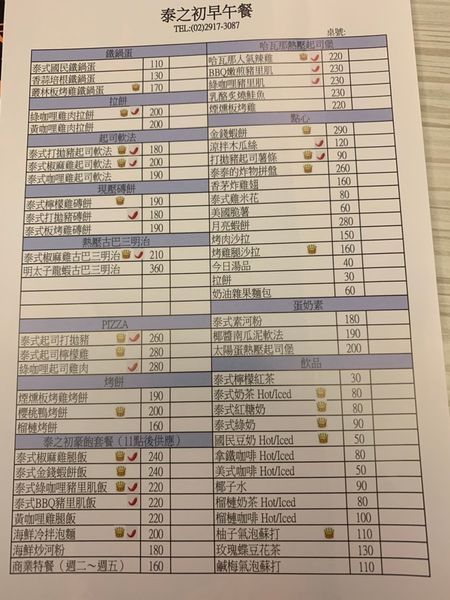 泰之初早午餐
TEL:(02)2917-3087
桌號:
鐵鍋蛋
泰式國民鐵鍋蛋 110
香蒜培根鐵鍋蛋 130
叢林板烤雞鐵鍋蛋 170
拉餅
綠咖哩雞肉拉餅 200
黃咖哩雞肉拉餅 200
起司軟法
泰式打拋豬起司軟法 180
泰式椒麻雞起司軟法 200
泰式咖哩起司軟法 190
現壓磚餅
泰式檸檬雞磚餅 190
泰式打拋豬磚餅 180
泰式板烤雞磚餅 190
熱壓古巴三明治
泰式椒麻雞古巴三明治 210
明太子龍蝦古巴三明治 360
PIZZA
泰式起司打拋豬 260
泰式起司檸檬雞 280
綠咖哩起司雞肉 280
烤餅
煙燻板烤雞烤餅 190
櫻桃鴨烤餅 200
榴槤烤餅 160
泰之初豪飽套餐（11點後供應）
泰式椒麻雞腿飯 240
泰式金錢蝦餅飯 240
泰式綠咖哩豬里肌飯 220
泰式BBQ豬里肌飯 220
黃咖哩雞腿飯 220
海鮮冷拌泡麵 200
海鮮炒河粉 180
商業特餐（週二～週五） 160
哈瓦那熱壓起司堡
哈瓦那人氣辣雞 220
BBQ嫩煎豬里肌 230
綠咖哩豬里肌 230
乳酪炙燒鮭魚 230
煙燻板烤雞 220
點心
金錢蝦餅 290
涼拌木瓜絲 120
打拋豬起司薯條 90
泰泰的炸物拼盤 260
香茅炸雞翅 160
泰式雞米花 80
美國脆薯 60
月亮蝦餅 280
烤肉沙拉 150
烤雞腿沙拉 160
今日湯品 40
拉餅 30
奶油雜果麵包 60
蛋奶素
泰式素河粉 180
椰醬南瓜泥軟法 190
太陽蛋熱壓起司堡 200
飲品
泰式檸檬紅茶 30
泰式奶茶 Hot/Iced 80
泰式紅糖奶 90
泰式綠奶 90
國民豆奶 Hot/Iced 50
拿鐵咖啡 Hot/Iced 80
美式咖啡 Hot/Iced 50
椰子水 90
榴槤奶茶 Hot/Iced 80
榴槤咖啡 Hot/Iced 100
柚子氣泡蘇打 110
玫瑰蝶豆花茶 130
鹹梅氣泡蘇打 110